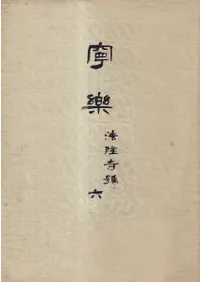 寧樂
法隆寺號
六